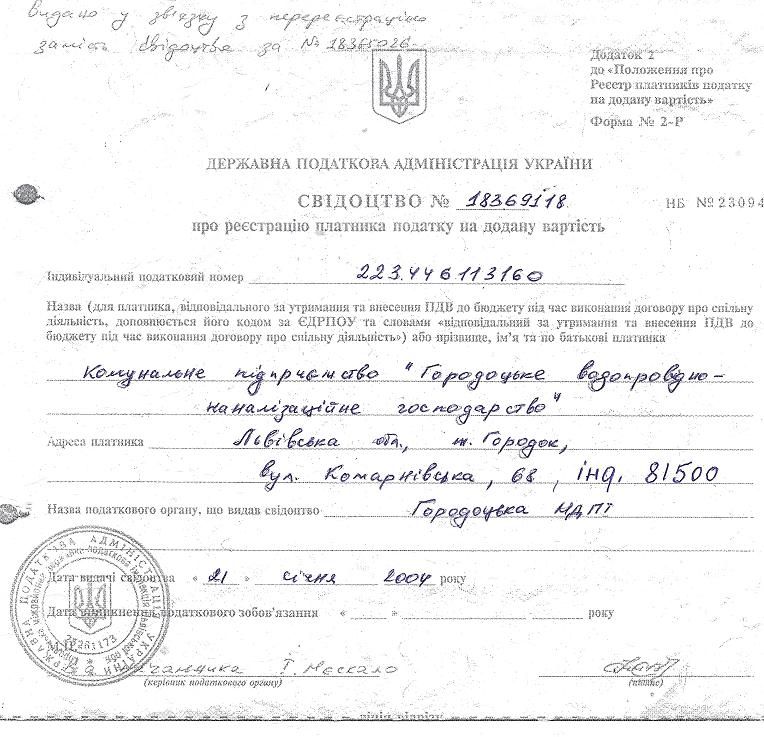 Видано у зв'язку з перереєстрацією
замість свідоцтва за № 18365026
Додаток 2
до «Положення про
Реєстр платників податку
на додану вартість»
Форма № 2-Р
ДЕРЖАВНА ПОДАТКОВА АДМІНІСТРАЦІЯ УКРАЇНИ
СВІДОЦТВО № 18369118
НБ №23094
про реєстрацію платника податку на додану вартість
Індивідуальний податковий номер 223446113160
Назва (для платника, відповідального за утримання та внесення ПДВ до бюджету під час виконання договору про спільну
діяльність, доповнюється його кодом за ЄДРПОУ та словами «відповідальний за утримання та внесення ПДВ до
бюджету під час виконання договору про спільну діяльність») або прізвище, ім'я та по батькові платника
Комунальне підприємство "Городоцьке водопровідно-
каналізаційне господарство"
Адреса платника Львівська обл., м. Городок,
вул. Комарнівська, 68, інд. 81500
Назва податкового органу, що видав свідоцтво Городоцька МДПІ
Дата видачі свідоцтва « 21 » січня 2004 року
Дата виникнення податкового зобов'язання « » року
М.П.
ДЕРЖАВНА ПОДАТКОВА АДМІНІСТРАЦІЯ УКРАЇНИ
(керівник податкового органу)
(підпис)
лінія відрізу